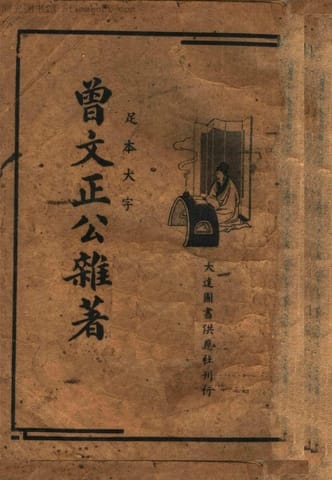 曾文正公雜著
足本大字
大達圖書供應社刊行